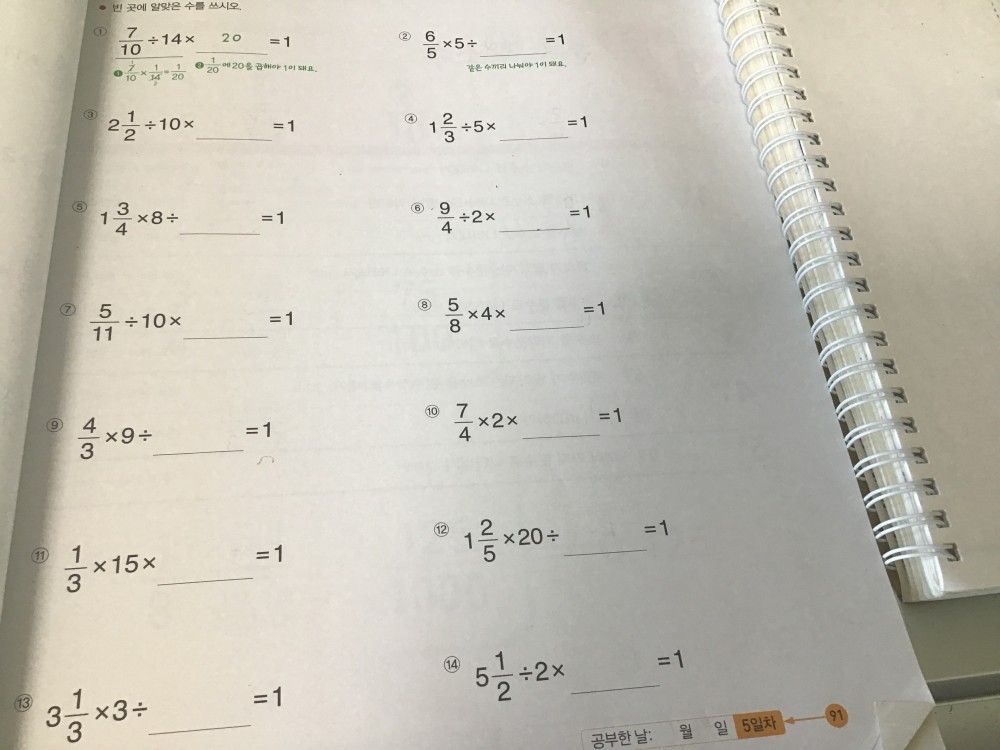 • 빈 곳에 알맞은 수를 쓰시오.
① 7/10 ÷14× 20 =1
❶ 7/10 × 1/14 = 1/20 ❷ 1/20 에 20을 곱해야 1이 돼요.
② 6/5 ×5÷ ____ =1
같은 수끼리 나눠야 1이 돼요.
③ 2 1/2 ÷10× ____ =1
④ 1 2/3 ÷5× ____ =1
⑤ 1 3/4 ×8÷ ____ =1
⑥ 9/4 ÷2× ____ =1
⑦ 5/11 ÷10× ____ =1
⑧ 5/8 ×4× ____ =1
⑨ 4/3 ×9÷ ____ =1
⑩ 7/4 ×2× ____ =1
⑪ 1/3 ×15× ____ =1
⑫ 1 2/5 ×20÷ ____ =1
⑬ 3 1/3 ×3÷ ____ =1
⑭ 5 1/2 ÷2× ____ =1
공부한 날: 월 일 5일차 91